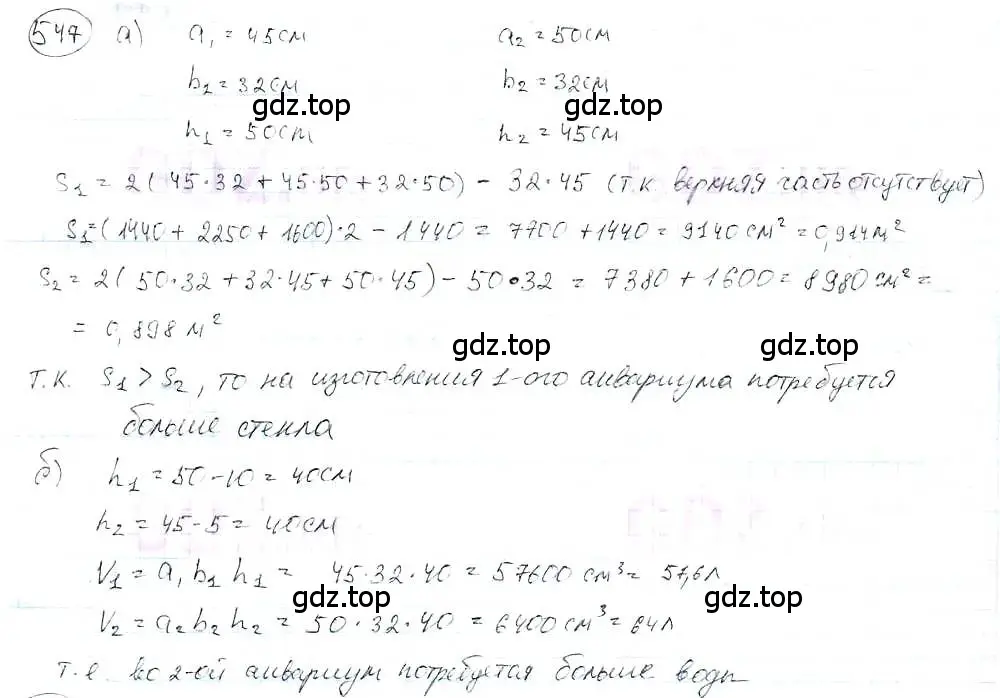 547 а) a₁ = 45см a₂ = 50см
b₁ = 32см b₂ = 32см
gdz.top gdz.top
h₁ = 50см h₂ = 45см
S₁ = 2(45·32 + 45·50 + 32·50) - 32·45 (т.к верхняя часть отсутствует)
S₁=(1440 + 2250 + 1600)·2 - 1440 = 7700 + 1440 = 9140 см² = 0,914м²
S₂ = 2(50·32 + 32·45 + 50·45) - 50·32 = 7380 + 1600 = 8980 см² =
= 0,898 м²
gdz.top gdz.top
т.к. S₁ > S₂, то на изготовления 1-ого аквариума потребуется
больше стекла
б) h₁ = 50-10 = 40см
h₂ = 45-5 = 40см
V₁ = a₁ b₁ h₁ = 45·32·40 = 57600 см³ = 57,6л
gdz.top gdz.top
V₂ = a₂ b₂ h₂ = 50·32·40 = 6400 см³ = 64л
т.е во 2-ой аквариум потребуется больше воды